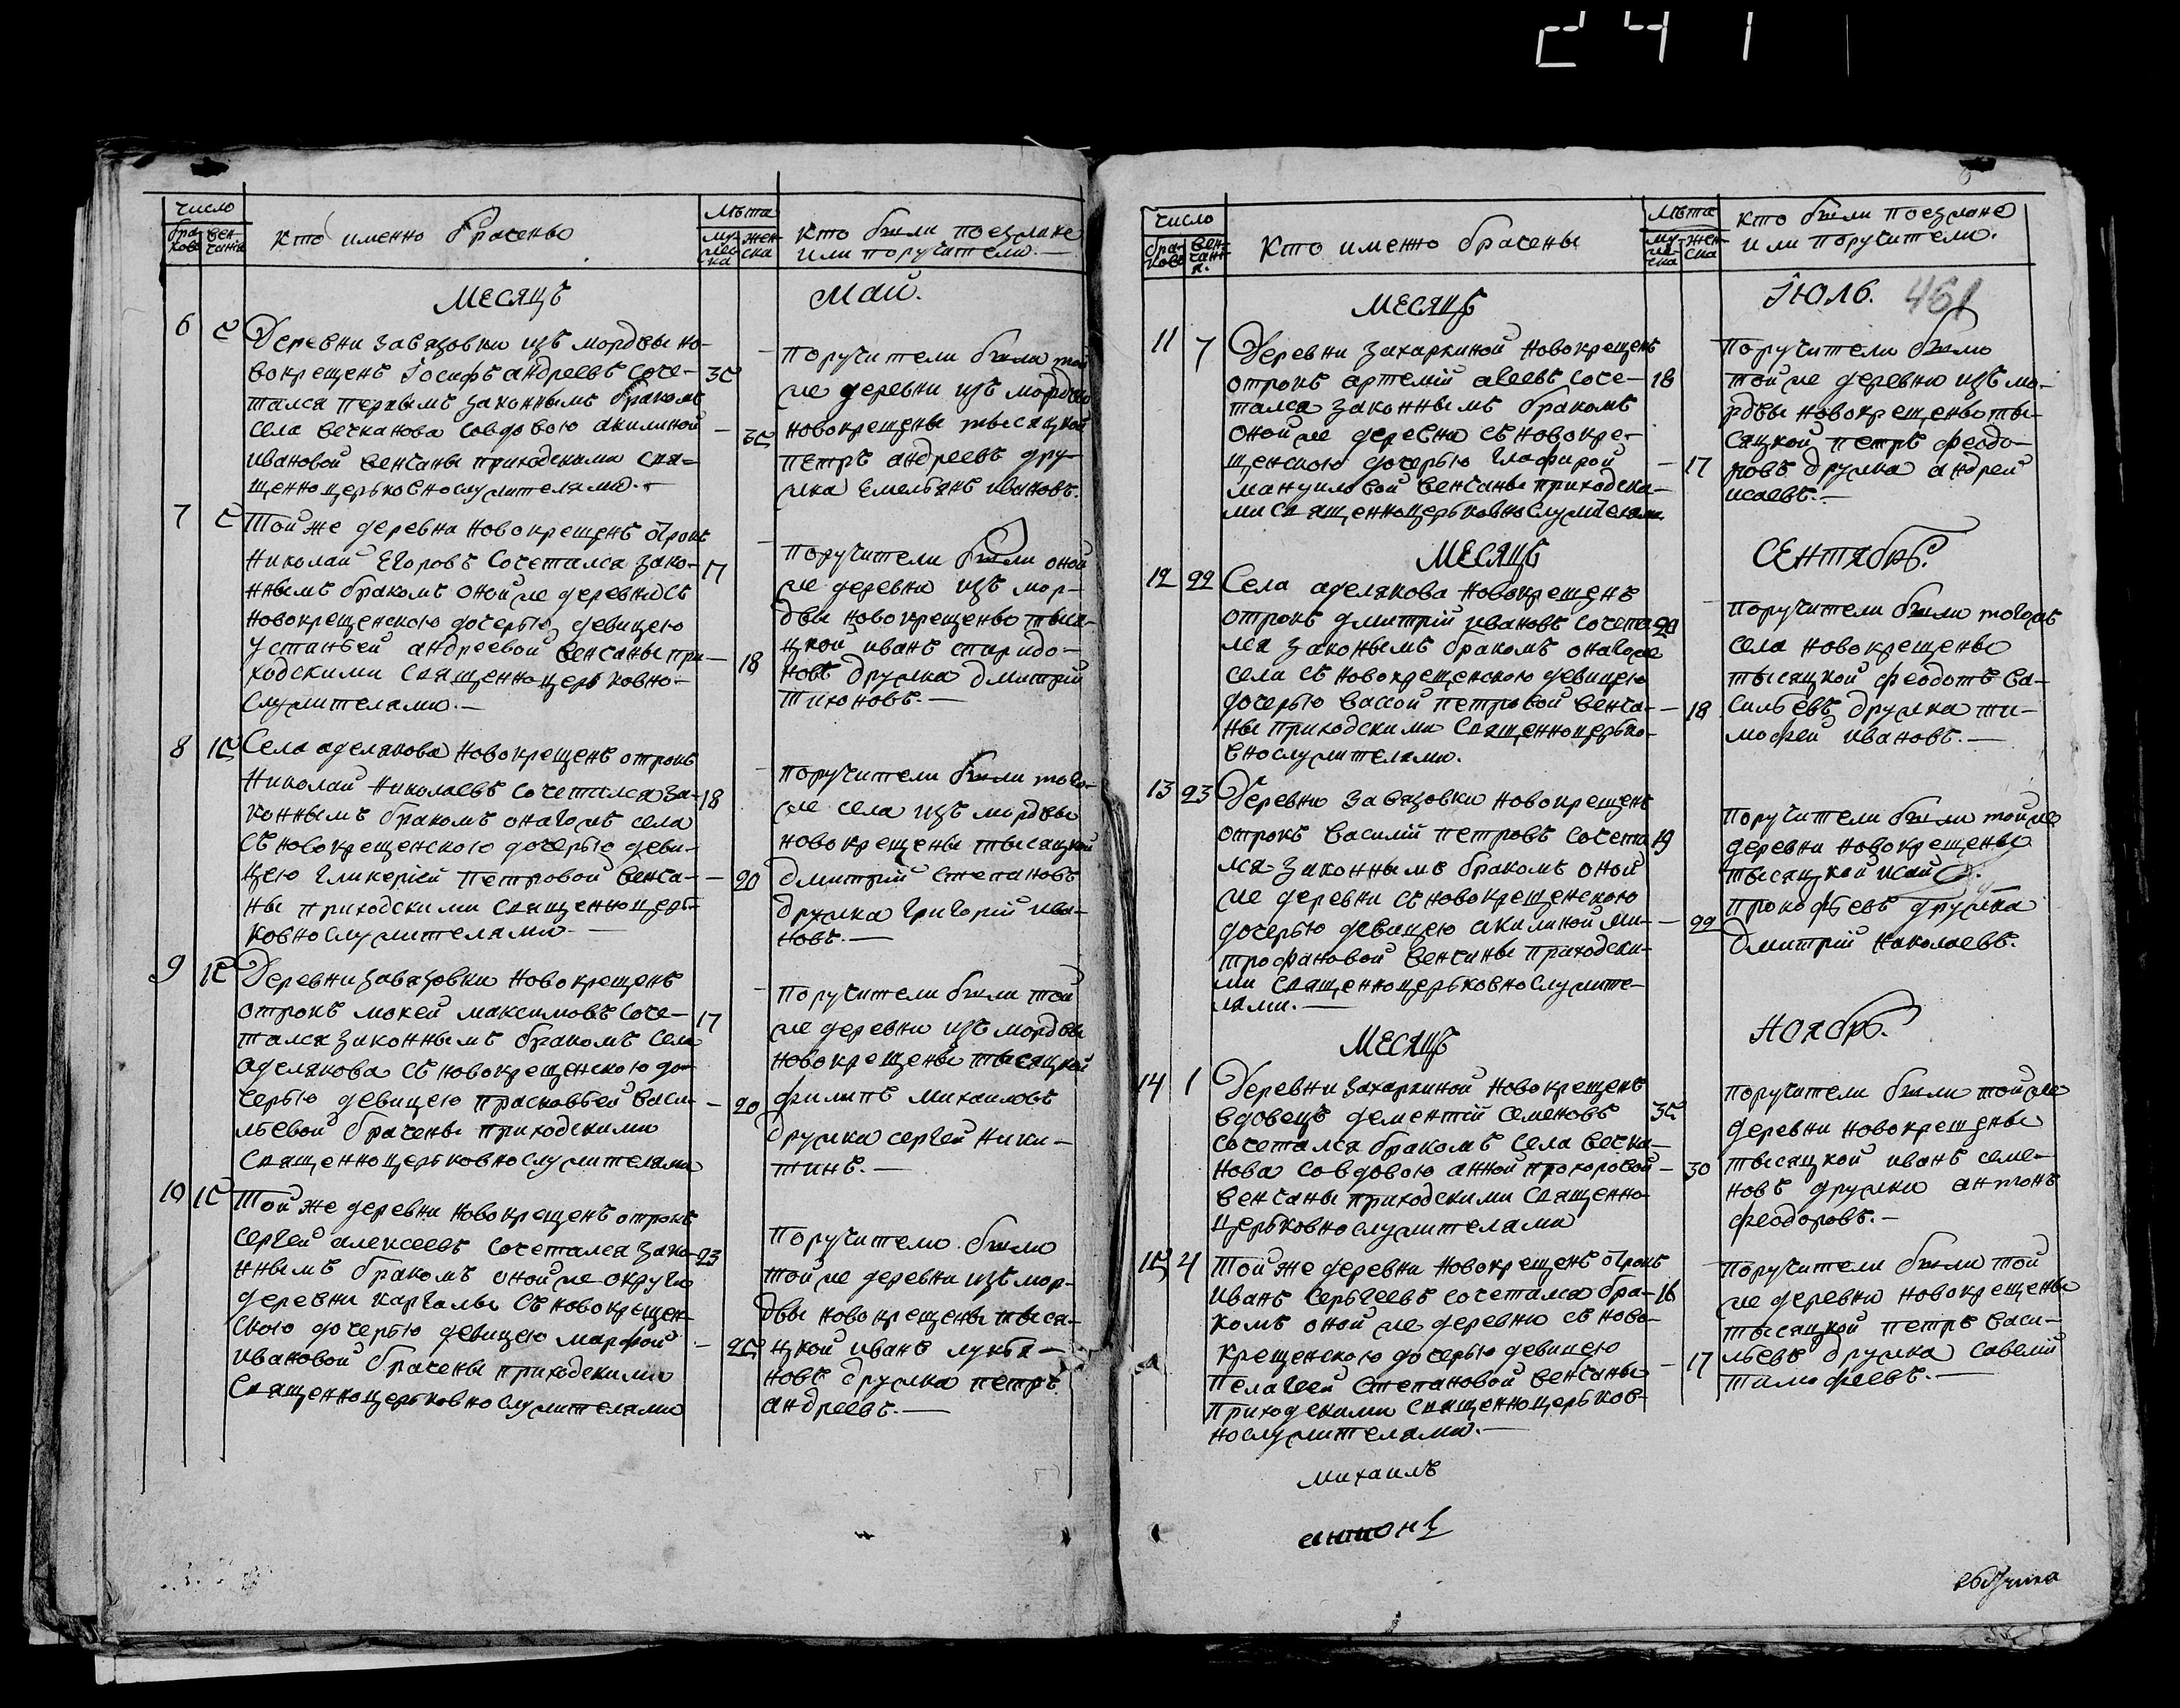 241
число
Лѣта
бра-
ково
вен-
чаніе
кто именно брачены
му-
жес-
ка
жен-
ска
кто были поезжане
или поручители.—
Месяцъ
Май.
6 5 Деревни завязовки изъ мордвы но-
вокрещенъ Іосифъ андреевъ соче- 35
тался первымъ законнымъ бракомъ
села вечканова совдовою акилиной — 35
ивановой венчаны приходскими свя-
щенноцерковнослужителями.—
поручители были той
же деревни изъ мордвы
новокрещены тысяцкой
петръ андреевъ дру-
жка Емельянъ ивановъ.
7 5 Той же деревни новокрещенъ отрокъ
Николай Егоровъ сочетался зако- 17
ннымъ бракомъ оной же деревни съ
новокрещенскою дочерью девицею
устиньей андреевой венчаны при- — 18
ходскими священноцерковно-
служителями.—
поручители были оной
же деревни изъ мор-
двы новокрещены тыся-
цкой иванъ спиридо-
новъ дружка дмитрій
тихоновъ.—
8 15 Села аделякова новокрещенъ отрокъ
Николай Николаевъ сочетался за- 18
коннымъ бракомъ онагожъ села
съ новокрещенскою дочерью деви-
цею гликеріей петровой венча- — 20
ны приходскими священноцер-
ковнослужителями.—
поручители были того
же села изъ мордвы
новокрещены тысяцкой
дмитрій степановъ
дружка григорій ива-
новъ.—
9 15 Деревни завязовки новокрещенъ
отрокъ мокей максимовъ соче- 17
тался законнымъ бракомъ села
аделякова съ новокрещенскою до-
черью девицею прасковьей васи- — 20
льевой брачены приходскими
священноцерковнослужителями
поручители были той
же деревни изъ мордвы
новокрещены тысяцкой
филипъ михаиловъ
дружка сергей ники-
тинъ.—
10 15 Той же деревни новокрещенъ отрокъ
сергей алексеевъ сочетался зако- 23
ннымъ бракомъ оной же округи
деревни каргалы съ новокрещен-
скою дочерью девицею марфой — 25
ивановой брачены приходскими
священноцерковнослужителями
поручители были
той же деревни изъ мор-
двы новокрещены тыся-
цкой иванъ лукья-
новъ дружка петръ
андреевъ.—
число
Лѣта
бра-
ково
вен-
чані-
я.
Кто именно брачены
му-
же-
ска
жен-
ска
кто были поезжане
или поручители.
Месяцъ
Іюль. 461
11 7 Деревни захаркиной новокрещенъ
отрокъ артемій авеевъ соче- 18
тался законнымъ бракомъ
оной же деревни съ новокре-
щенскою дочерью глафирой — 17
мануиловой венчаны приходска-
ми священноцерковнослужителями
поручители были
той же деревни изъ мо-
рдвы новокрещены ты-
сяцкой петръ феодо-
ровъ дружка андрей
исаевъ.—
Месяцъ
Сентябрь.
12 22 Села аделякова новокрещенъ
отрокъ дмитрій ивановъ сочета 20
лся законымъ бракомъ онагоже
села съ новокрещенскою девицею
дочерью вассой петровой венча- — 18
ны приходскими священноцерко-
внослужителями.
поручители были тогожъ
села новокрещены
тысяцкой феодотъ ва-
сильевъ дружка ти-
мофей ивановъ.—
13 23 Деревни завязовки новокрещенъ
отрокъ василій петровъ сочета 19
лся законнымъ бракомъ оной
же деревни съ новокрещенскою
дочерью девицею акилиной ми- — 22
трофановой венчаны приходски-
ми священноцерковнослужите-
лями.—
поручители были той же
деревни новокрещены
тысяцкой исай
прокофьевъ дружка
дмитрій николаевъ.
Месяцъ
Ноябрь.
14 1 Деревни захаркиной новокрещенъ
вдовецъ дементій семеновъ 35
сочетался бракомъ села вечка-
нова совдовою анной прохоровой — 30
венчаны приходскими священно
церковнослужителями
поручители были той же
деревни новокрещены
тысяцкой иванъ семе-
новъ дружка антонъ
феодоровъ.—
15 4 Той же деревни новокрещенъ отрокъ
иванъ сергеевъ сочетался бра- 16
комъ оной же деревни съ ново-
крещенскою дочерью девицею
пелагеей степановой венчаны — 17
приходскими священноцерков-
нослужителями.—
поручители были той
же деревни новокрещены
тысяцкой петръ васи-
льевъ дружка савелій
тимофеевъ.—
михаилъ
антонъ